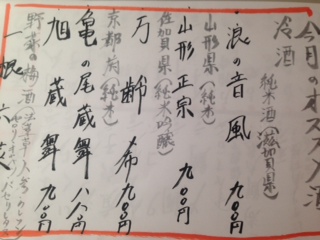 今月のオススメ酒
冷酒
純米酒(滋賀県)
浪の音 風 九〇〇円
山形県(純米)
山形正宗 九〇〇円
佐賀県(純米吟醸)
万齢 希 九〇〇円
京都府(純米)
亀の尾蔵舞
旭蔵舞 九〇〇円
野菜の梅酒